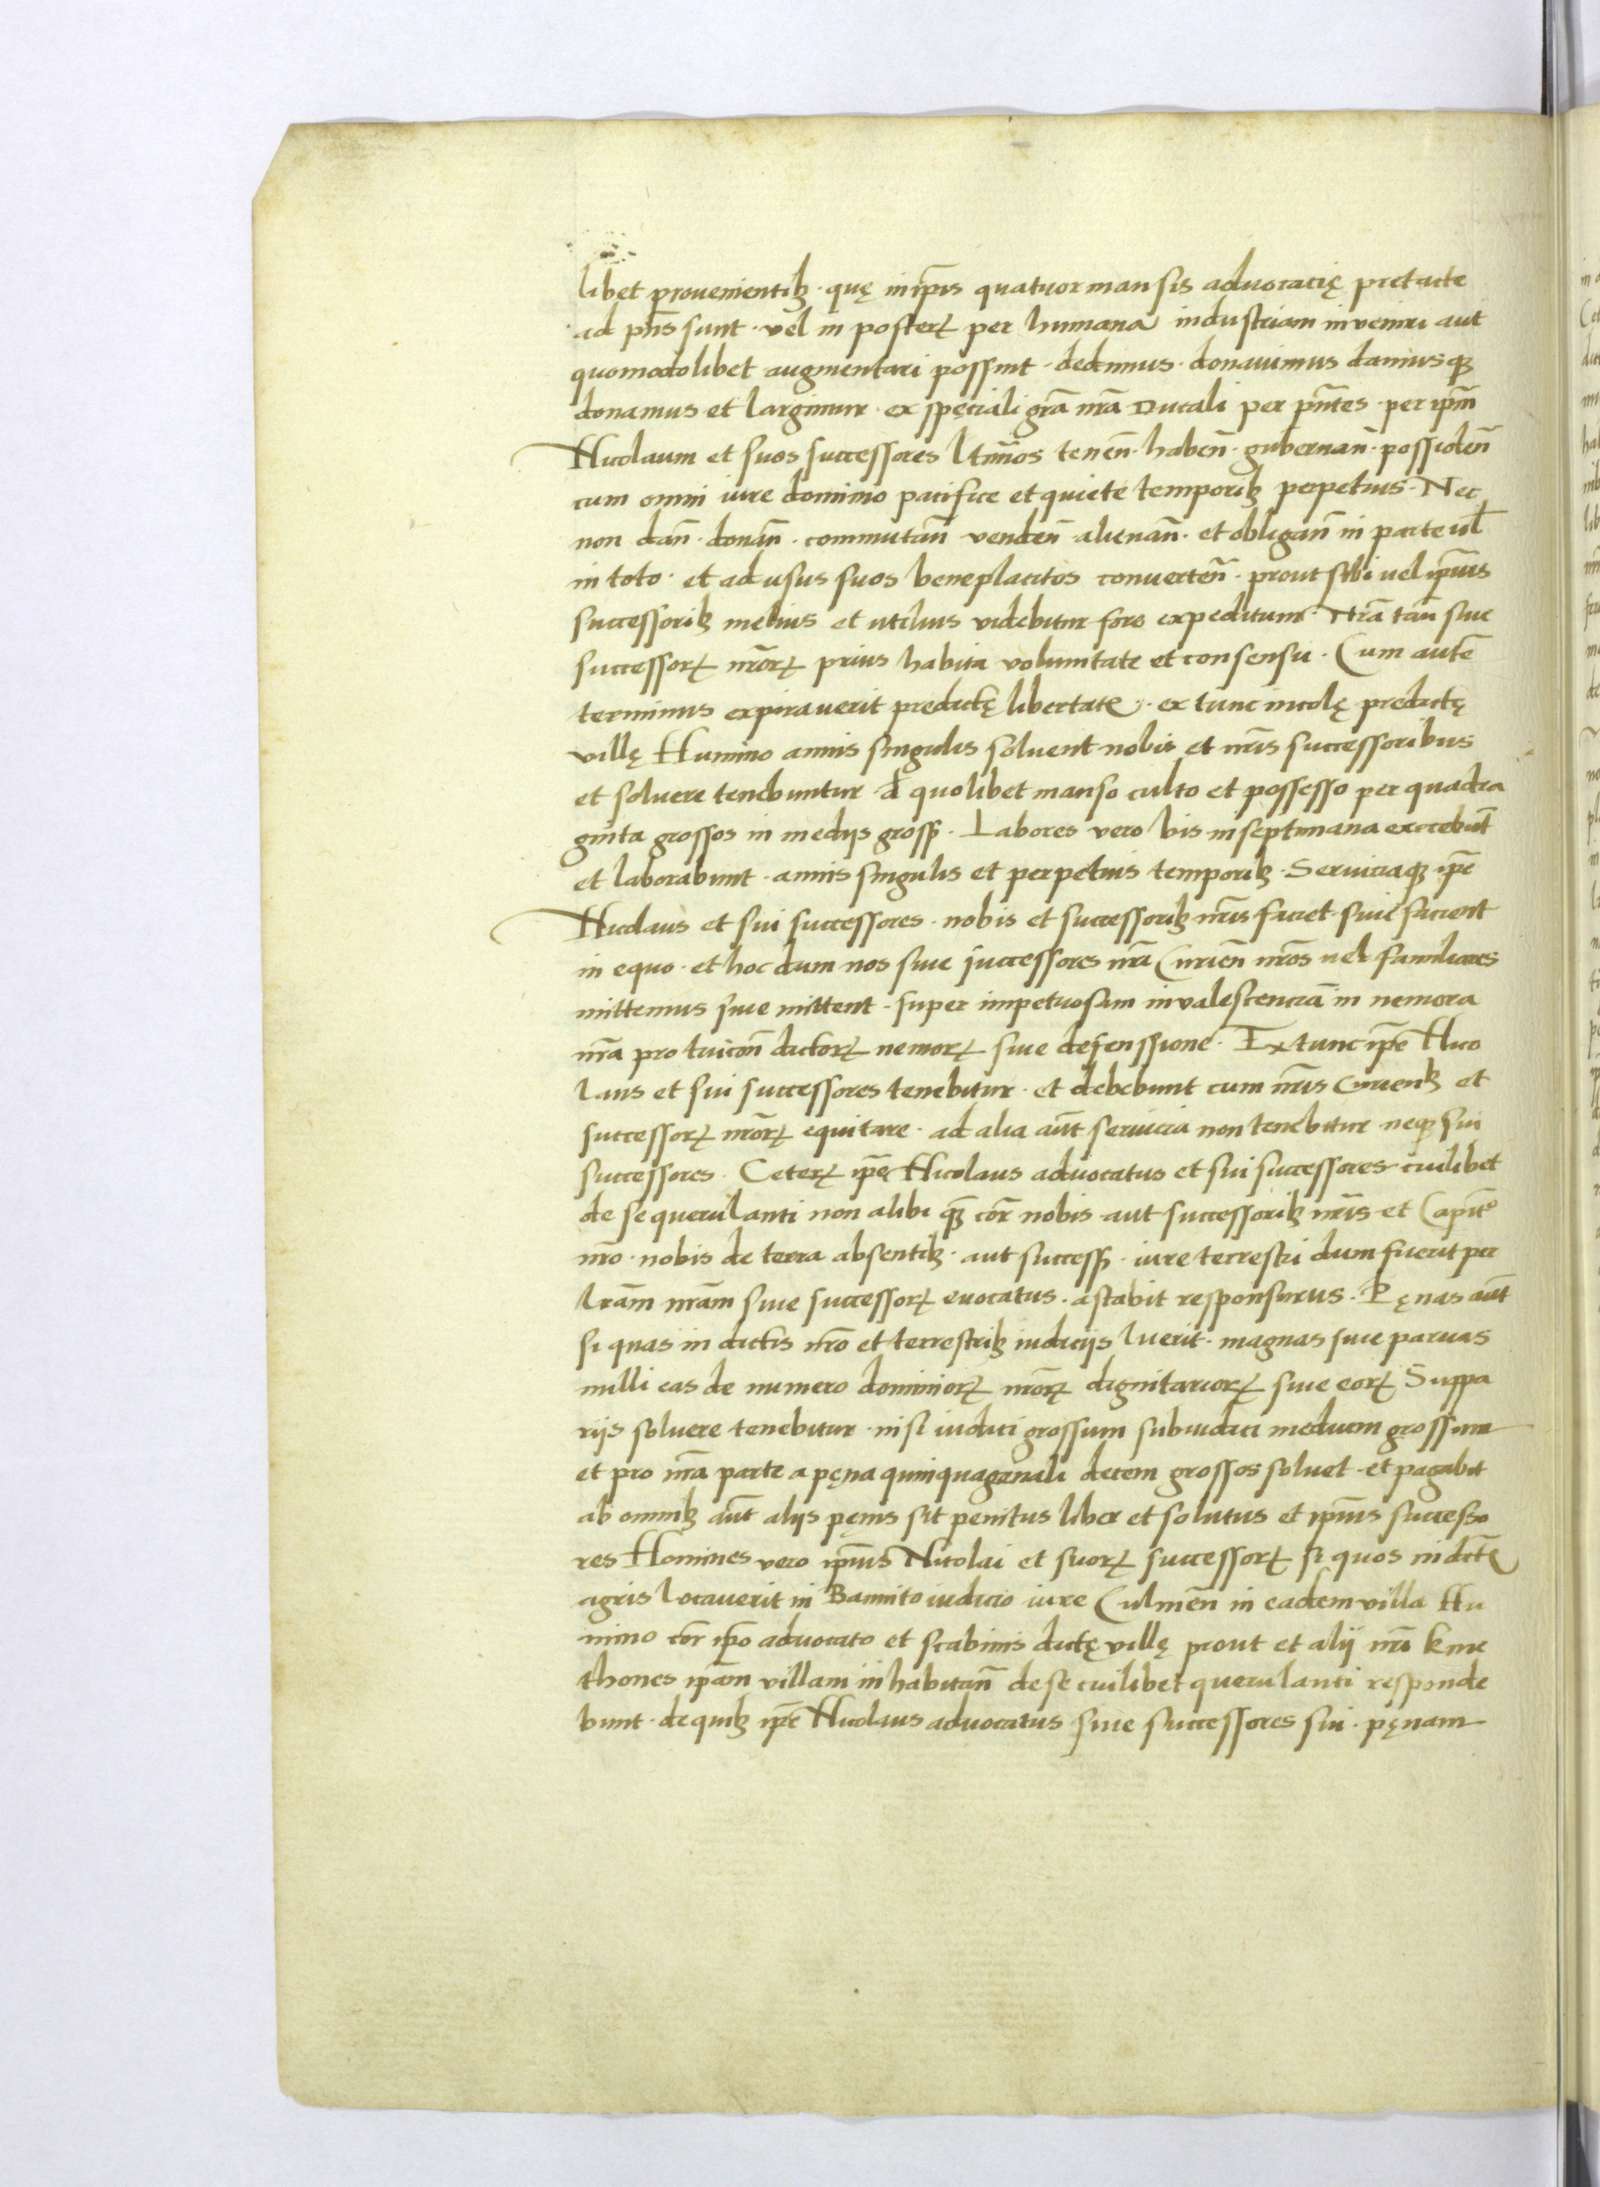 libet provenientibȝ · quę in ip̄is quatuor mansis advocacię pretacte
ad p̄ns sunt · vel in posterꝝ per humanā industriam inveniri aut
quomodolibet augmentari possint · dedimus · donavimus damusqꝫ
donamus et largimur · ex speciali grā nrā Ducali per pn̄tes · per ip̄m
Nicolaum et suos successores ltimos tenen̄ · haben̄ · gubernan̄ · possiden̄
cum omni iure dominio pacifice et quiete temporibȝ perpetuis · Nec
non dan̄ · donan̄ · commutan̄ venden̄ alienan̄ · et obligan̄ in parte ul̄
in toto · et ad usus suos beneplacitos converten̄ · prout sibi vel ip̄ius
successoribȝ melius et utilius videbitur fore expeditum · Nrā tam̄ sive
successorꝝ nrōrꝝ prius habita voluntate et consensu · Cum autē
terminus expiraverit predictę libertatis · ex tunc incolę predictę
villę Humino annis singulis solvent nobis et nrīs successoribus
et solvere tenebuntur d̄ quolibet manso culto et possesso per quadra
ginta grossos in mediis gross̄ · Labores vero bis in septimana exercebūt
et laborabunt · annis singulis et perpetuis temporibȝ · Serviciaqꝫ ip̄e
Nicolaus et sui successores · nobis et successoribȝ nrīs faciet sive facient
in equo · et hoc dum nos sive successores nrī Curien̄ nrōs vel familiares
mittemus sive mittent · super impetuosam invalescenciā in nemora
nrā pro tuicon̄ dictorꝝ nemorꝝ sive defenssione · Extunc ip̄e Nico
laus et sui successores tenebitur · et debebunt cum nrīs Curienbȝ et
successorꝝ nrōrꝝ equitare · ad alia aūt servicia non tenebitur neqꝫ sui
successores · Ceterꝝ ip̄e Nicolaus advocatus et sui successores cuilibet
de se querulanti non alibi qꝫ cor̄ nobis aut successoribȝ nrīs et Capit̄o
nrō · nobis de terra absentibȝ · aut success̄ · iure terrestri dum fuerit per
lrām nrām sive successorꝝ evocatus · astabit responsurus · Pęnas aūt
si quas in dictis nrō et terrestribȝ iudiciis luerit · magnas sive parvas
nulli eas de numero dominorꝝ nrōrꝝ dignitariorꝝ sive eorꝝ Suppa
riis solvere tenebitur · nisi iudici grossum subiudici medium grossum
et pro nrā parte a pęna quinquagenali decem grossos solvet · et pagabit
ab omnibȝ aūt aliis pęnis sit penitus liber et solutus et ip̄ius successo
res Homines vero ip̄ius Nicolai et suorꝝ successorꝝ si quos in dictis
agris locaverit in Bannito iudicio iure Culmen̄ in eadem villa Hu
mino cor̄ ip̄o advocato et scabinis dictę villę prout et alii nrī kme
thones ip̄am villam inhabitan̄ de se cuilibet querulanti responde
bunt · de quibȝ ip̄e Nicolaus advocatus sive successores sui · pęnam